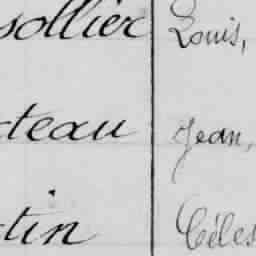 sollier Louis,
cteau Jean,
tin Céles